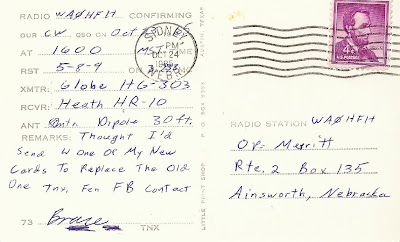 RADIO WAØHFH CONFIRMING
OUR CW QSO ON Oct
AT 1600 MST TIME
RST 5-8-9
XMTR: Globe HG-303
RCVR: Heath HR-10
ANT Cntr Dipole 30 ft.
REMARKS: Thought I'd
Send U One Of My New
Cards To Replace The Old
One Tnx. Fer FB Contact
73 Bruce TNX
LITTLE PRINT SHOP P. O. BOX AUSTIN, TEXAS
SIDNEY
PM
OCT 24
NEBR
4¢
U.S. POSTAGE
RADIO STATION WAØHFH
Op- Merritt
Rte. 2 Box 135
Ainsworth, Nebraska